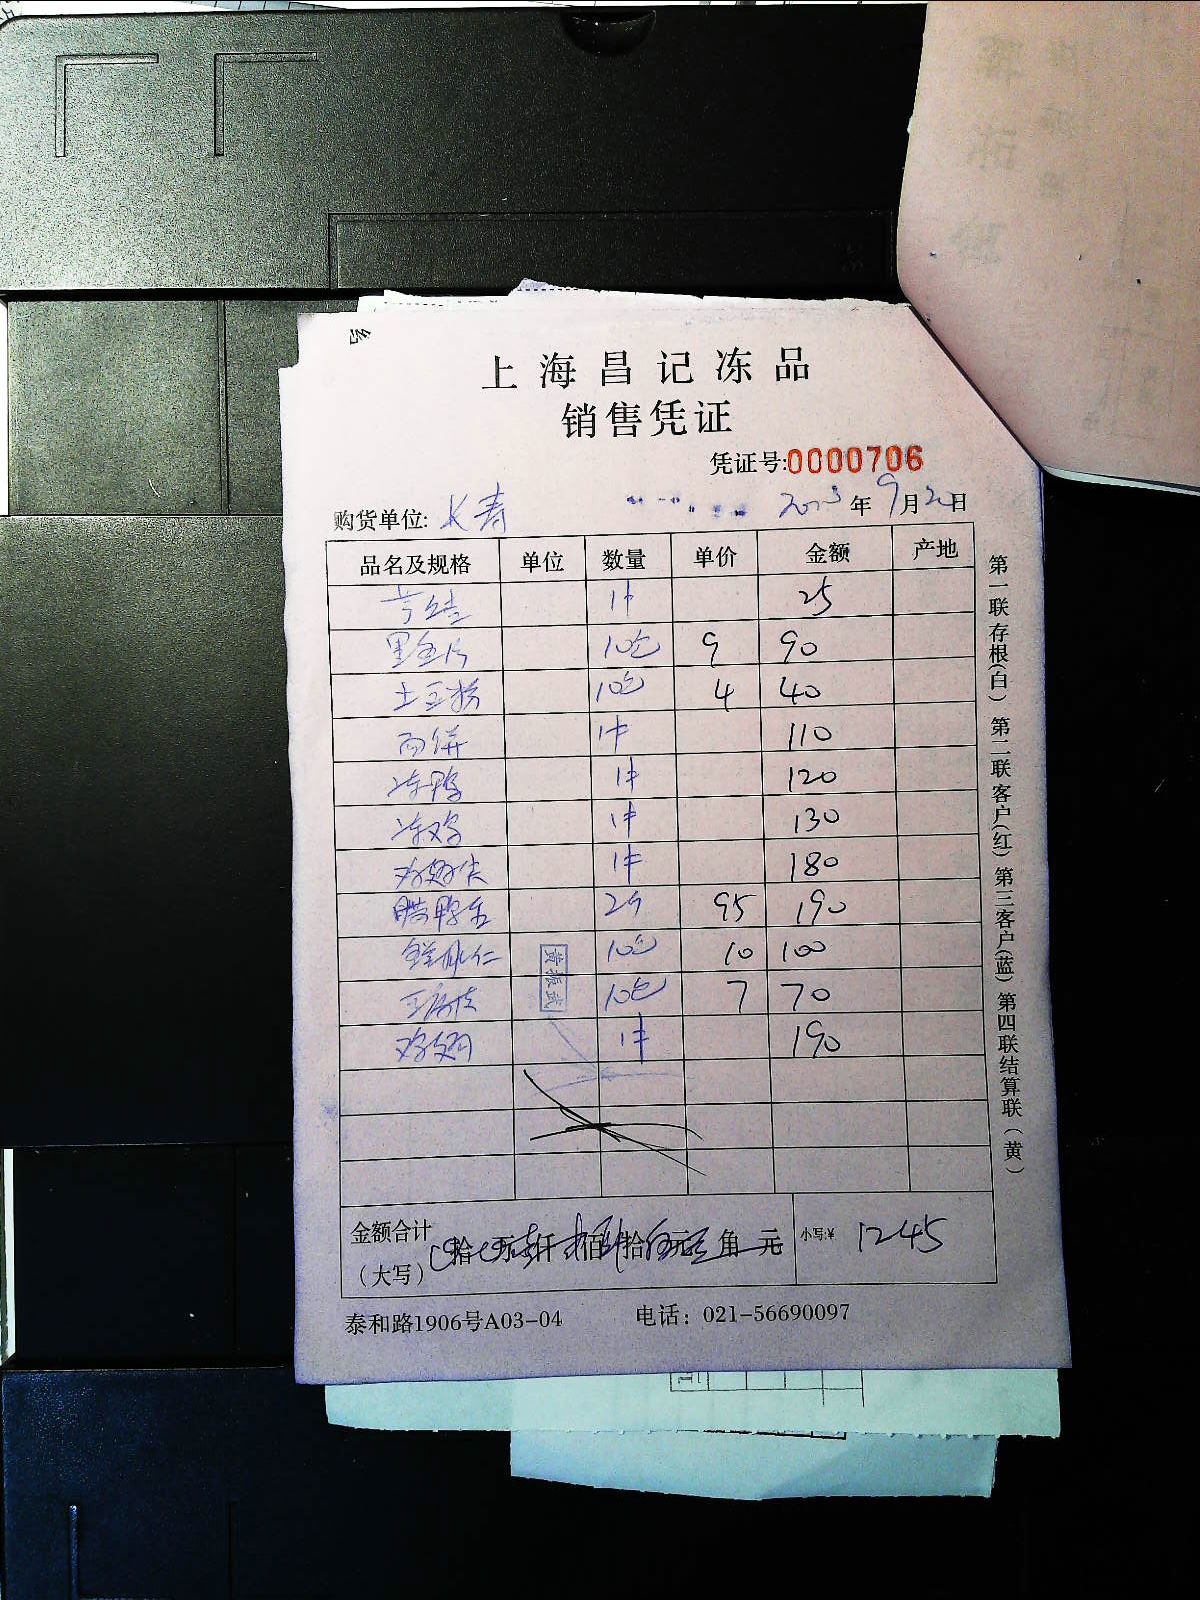 上海昌记冻品
销售凭证
凭证号:0000706
购货单位: 长寿 年 9月 日
品名及规格 单位 数量 单价 金额 产地
1件 25
黑鱼片 10包 9 90
土豆粉 10包 4 40
面饼 1件 110
冻鸭 1件 120
冻鸡 1件 130
鸡翅尖 1件 180
腊鸭 2个 95 190
虾仁 10包 10 100
10包 7 70
鸡翅 1件 190
黄振武
金额合计
(大写) 拾 万 仟 佰 拾 元 角 元 小写:¥ 1245
泰和路1906号A03-04 电话：021-56690097
第一联存根(白) 第二联客户(红) 第三客户(蓝) 第四联结算联(黄)